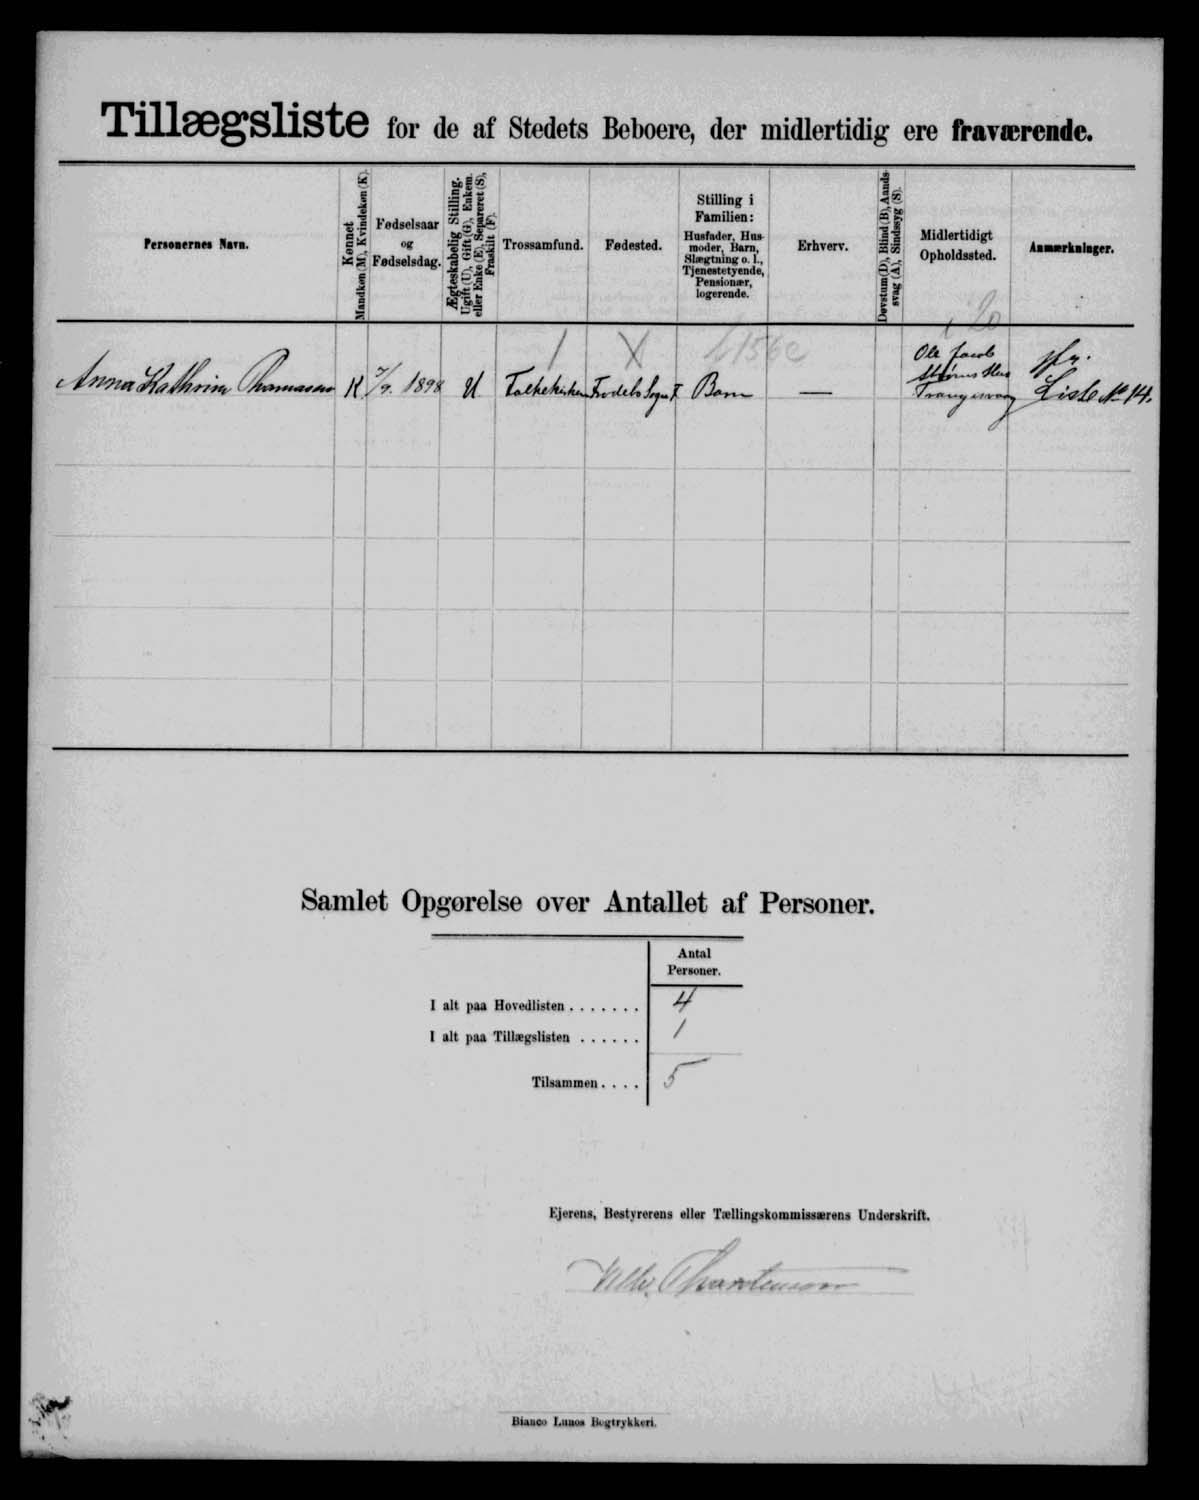 Tillægsliste for de af Stedets Beboere, der midlertidig ere fraværende.
Personernes Navn.
Kønnet
Mandkøn (M), Kvindekøn (K).
Fødselsaar
og
Fødselsdag.
Ægteskabelig Stilling.
Ugift (U), Gift (G), Enkem.
eller Enke (E), Separeret (S),
Fraskilt (F).
Trossamfund.
Fødested.
Stilling i
Familien:
Husfader, Hus-
moder, Barn,
Slægtning o. l.,
Tjenestetyende,
Pensionær,
logerende.
Erhverv.
Døvstum (D), Blind (B), Aands-
svag (A), Sindssyg (S).
Midlertidigt
Opholdssted.
Anmærkninger.
Anna Kathrine K 7/9 1898 U Folkekirken Frodebo Sogn F Barn — Ole Jacob
Trangisvaag
jfr.
Liste No 14.
Samlet Opgørelse over Antallet af Personer.
Antal
Personer.
I alt paa Hovedlisten . . . . . . . 4
I alt paa Tillægslisten . . . . . . 1
Tilsammen . . . . 5
Ejerens, Bestyrerens eller Tællingskommissærens Underskrift.
Bianco Lunos Bogtrykkeri.